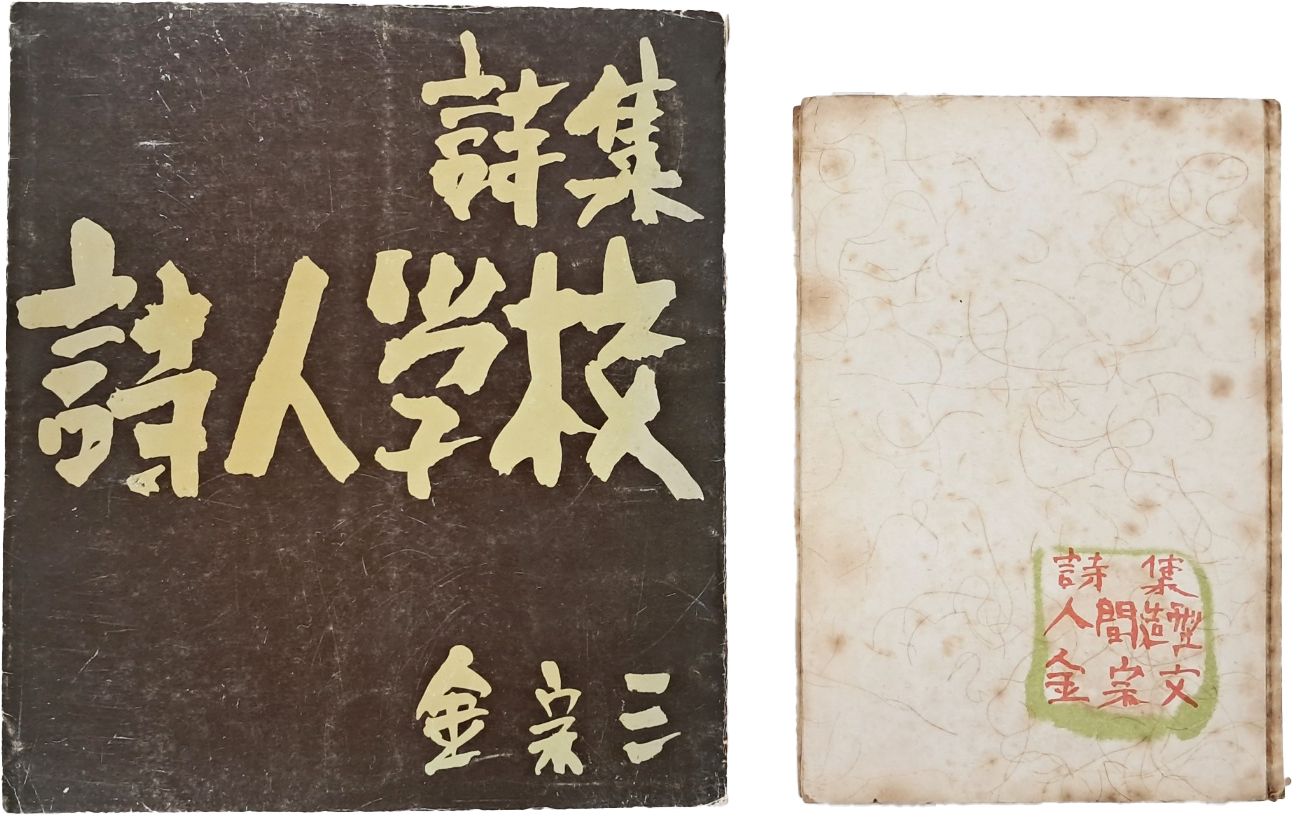 詩集
詩人学校
金宗三
詩集
人間造型
金宗文